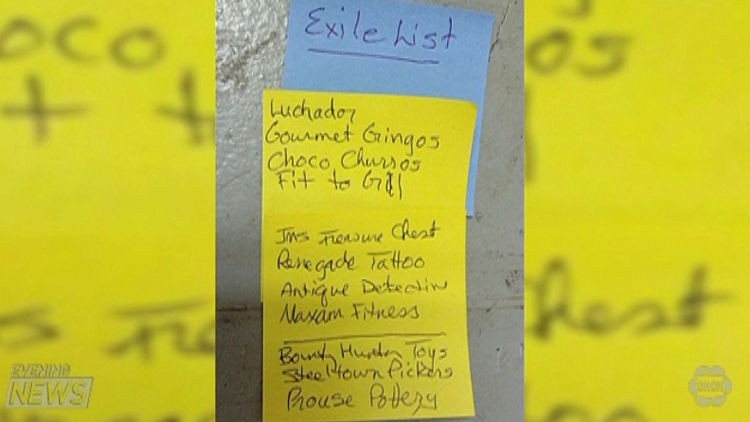 Exile List
Luchador
Gourmet Gringos
Choco Churros
Fit to Grill
JMS Treasure Chest
Renegade Tattoo
Antique Detective
Maxam Fitness
Bounty Hunter Toys
Steeltown Pickers
Prouse Pottery
EVENING
NEWS
CHCH